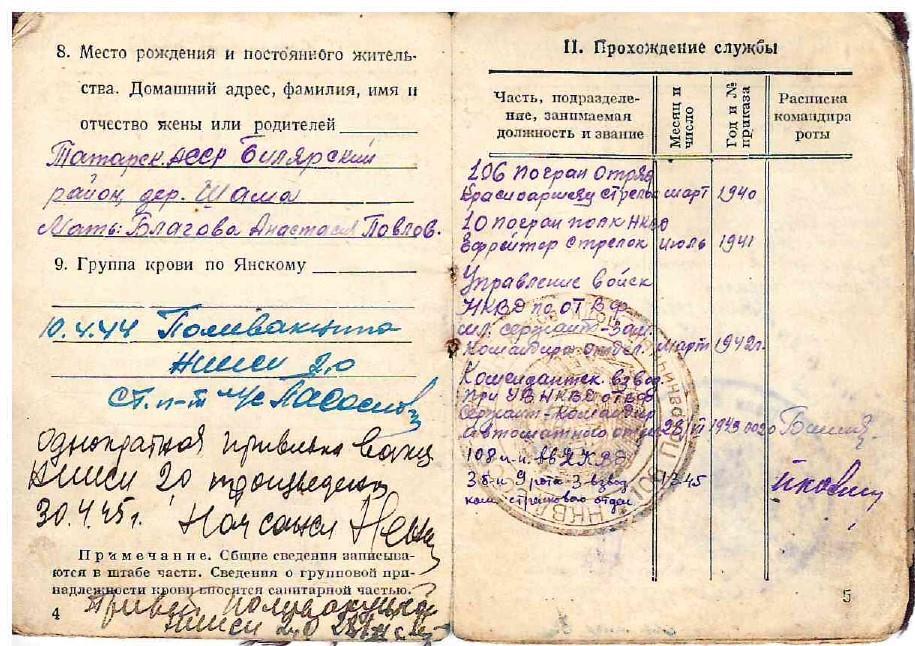 8. Место рождения и постоянного житель-
ства. Домашний адрес, фамилия, имя и
отчество жены или родителей
Татарск. АССР Билярский
район, дер. Шама
Мать: Благова Анастасия Павлов.
9. Группа крови по Янскому
10.4.44 Поливакцина
НИИСИ 2,0
Ст. л-т м/с
однократная прививка вакц
НИИСИ 2,0 произведена
30.4.45 г. Нач сансл
Примечание. Общие сведения записыва-
ются в штабе части. Сведения о групповой при-
надлежности крови вносятся санитарной частью.
Привит
НИИСИ 2,0
4
II. Прохождение службы
Часть, подразделе-
ние, занимаемая
должность и звание
Месяц и
число
Год и №
приказа
Расписка
командира
роты
106 погран отряд
Красноармеец стрелок март 1940
10 погран полк НКВД
Ефрейтор стрелок июль 1941
Управление войск
НКВД по от ВФ
мл. сержант - зам.
Командира отдел. март 1942г.
Комендантск. взвод
при УВ НКВД от ВФ
Сержант - Командир
Автоматного отдел 1943 0020
108 п.п. вв НКВД
3 б-н 9 рота 3 взвод 45
ком. стрелкового отдел
5